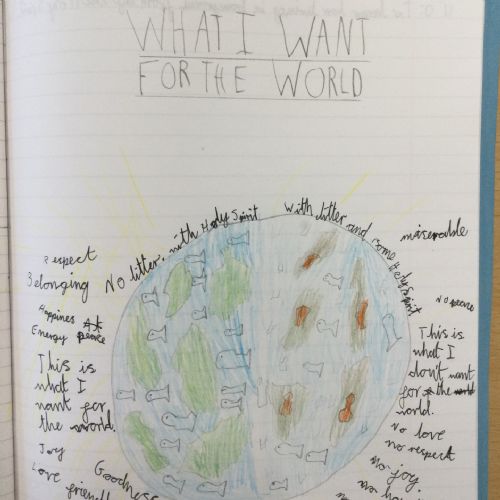 WHAT I WANT
FOR THE WORLD
No litter, with Holy Spirit
With litter and some Holy Spirit
respect
Belonging
Happines
Energy peace
This is
what I
want for
the world.
Joy
Love
Goodness
miserable
No peace
This is
what I
don't want
for the world
world.
No love
no respect
no joy.